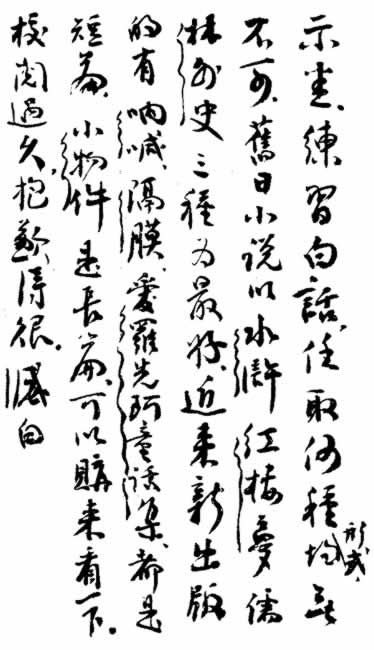 示悉、練習白話、任取何種形式、均無
不可、舊日小说以水滸紅樓夢儒
林外史三種为最好、近来新出版
的有呐喊、隔膜、愛羅先珂童话集、都是
短篇、小物件是長篇、可以購来看一下。
校閲過久、抱歉得很。 白